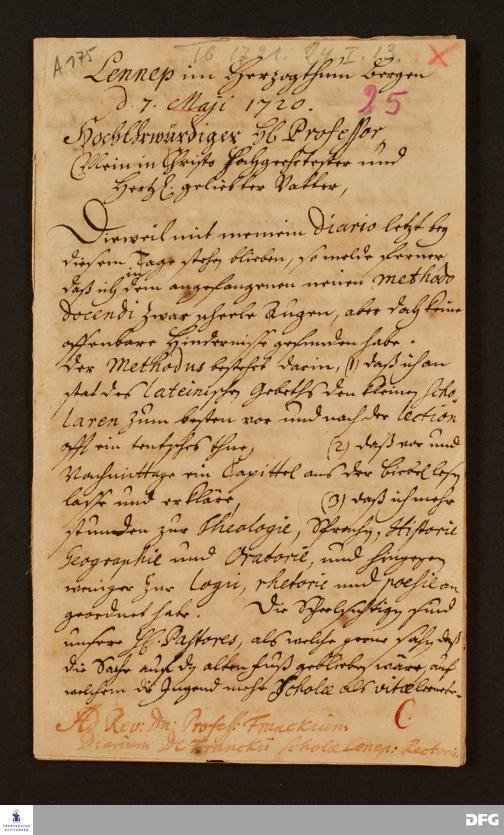 A 175
TG 1721. 24 I. 13.
Lennep im Herzogthum Bergen
d. 7. Maji 1720.
25
HochEhrwürdiger H. Professor,
Mein in Christo Hochgeehrtester und
Hertzl. geliebter Vatter,
Dieweil mit meinem Diario letzt bey
diesem Tage stehen blieben, so melde ferner,
daß ich in dem angefangenen neuen methodo
docendi zwar scheele Augen, aber doch keine
offenbare Hindernisse gefunden habe.
Der Methodus bestehet darin, (1) daß ich an
stat des Lateinischen Gebeths den kleinen Scho-
laren zum besten vor und nach der lection
offt ein teutsches thue, (2) daß vor und
Nachmittage ein Capittel aus der Biebel lesen
lasse und erkläre, (3) daß ich mehr
stunden zur Theologie, Sprachen, Historie
Geographie und Oratorie, und hingegen
weniger zur Logic, rhetoric und poesie an
geordnet habe. Die Scheelsichtigen sind
unsere HH. Pastores, als welche gerne sahen, daß
die Sache auf den alten Fuß geblieben wäre, auf
welchem die Jugend mehr Scholæ als vitæ lernete.
C.
Ad Rev: Dn: Profess: Franckium
Diarium Dr Franckii Scholæ Lenep: Rectoris
FRANCKESCHE STIFTUNGEN
DFG